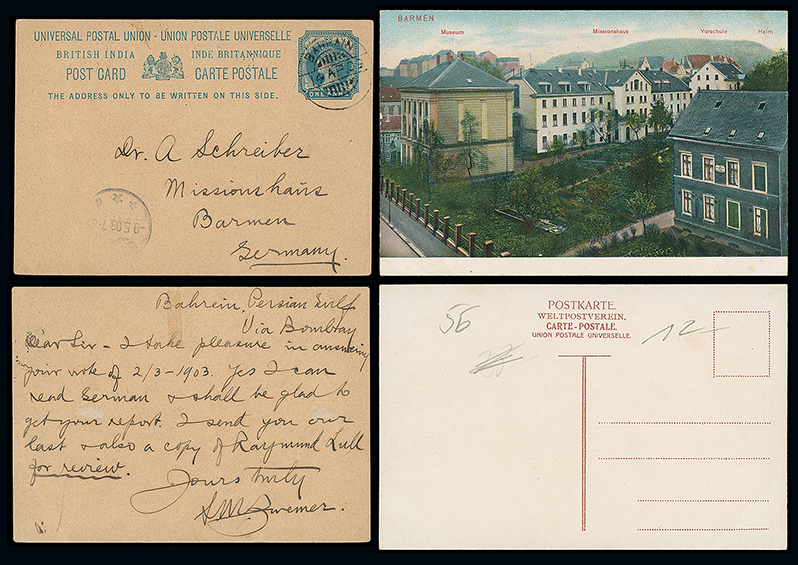 UNIVERSAL POSTAL UNION - UNION POSTALE UNIVERSELLE
BRITISH INDIA INDE BRITANNIQUE
POST CARD CARTE POSTALE
THE ADDRESS ONLY TO BE WRITTEN ON THIS SIDE.
ONE ANNA
BAHREIN
Dr. A Schreiber
Missionshaus
Barmen
Germany.
-9.5.03.7-8
BARMEN
Museum Missionshaus Vorschule Heim
Bahrein, Persian Gulf
Via Bombay
Dear Sir - I take pleasure in answering
your note of 2/3-1903. Yes I can
read German & shall be glad to
get your report. I send you our
last & also a copy of Raymund Lull
for review.
Yours truly
S.M. Zwemer.
56
12
POSTKARTE
WELTPOSTVEREIN.
CARTE-POSTALE.
UNION POSTALE UNIVERSELLE.